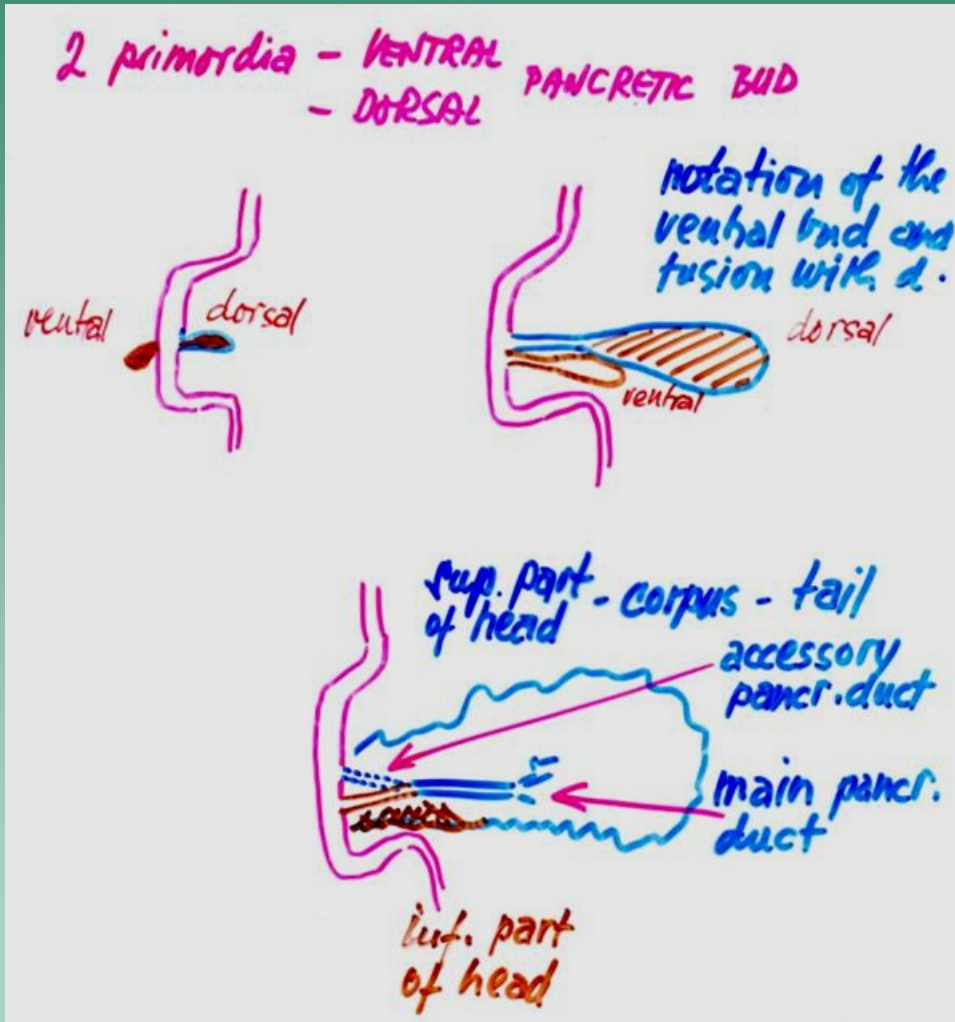 2 primordia - VENTRAL
- DORSAL
PANCRETIC BUD
rotation of the
ventral bud and
fusion with d.
ventral
dorsal
dorsal
ventral
sup. part
of head
- corpus - tail
accessory
pancr. duct
main pancr.
duct
inf. part
of head